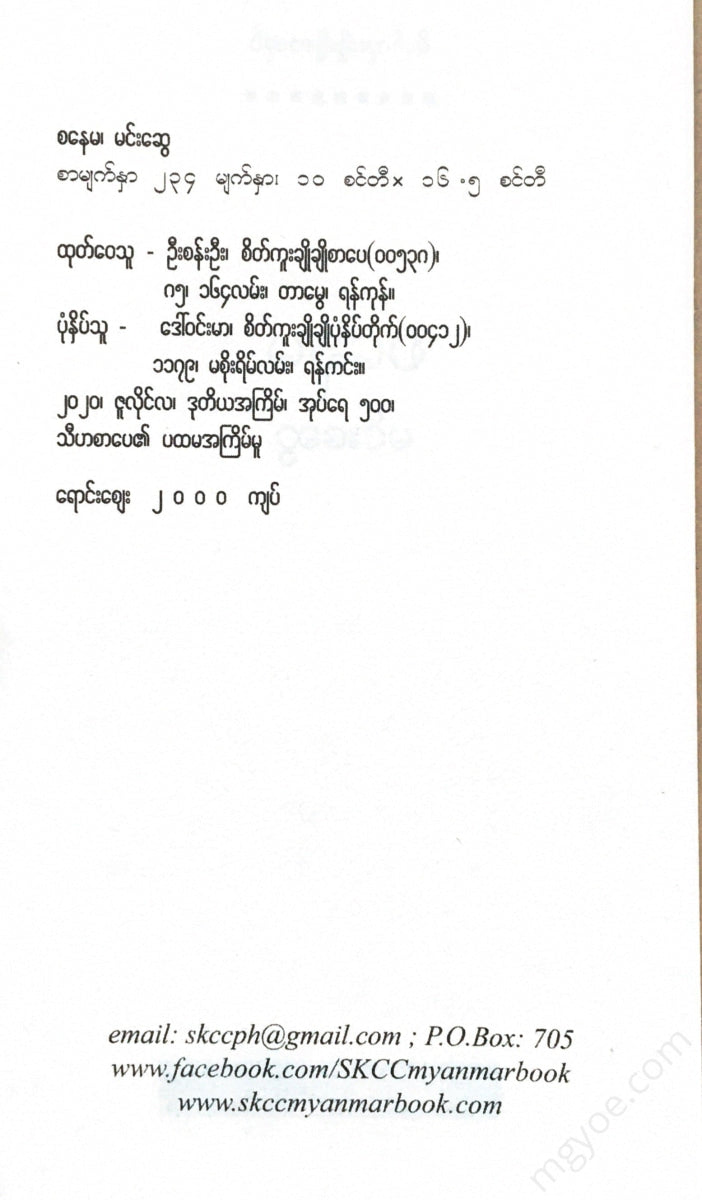 စနေမ၊ မင်းဆွေ
စာမျက်နှာ ၂၃၄ မျက်နှာ၊ ၁၀ စင်တီ× ၁၆.၅ စင်တီ
ထုတ်ဝေသူ - ဦးစန်းဦး၊ စိတ်ကူးချိုချိုစာပေ(၀၀၅၃၈)၊
ဂ၅၊ ၁၆၄လမ်း၊ တာမွေ၊ ရန်ကုန်။
ပုံနှိပ်သူ - ဒေါ်ဝင်းမာ၊ စိတ်ကူးချိုချိုပုံနှိပ်တိုက်(၀၀၄၁၂)၊
၁၁၇၉၊ မစိုးရိမ်လမ်း၊ ရန်ကင်း။
၂၀၂၀၊ ဇူလိုင်လ၊ ဒုတိယအကြိမ်၊ အုပ်ရေ ၅၀၀၊
သီဟစာပေ၏ ပထမအကြိမ်မူ
ရောင်းဈေး ၂ ၀ ၀ ၀ ကျပ်
email: skccph@gmail.com ; P.O.Box: 705
www.facebook.com/SKCCmyanmarbook
www.skccmyanmarbook.com
mgyoe.com